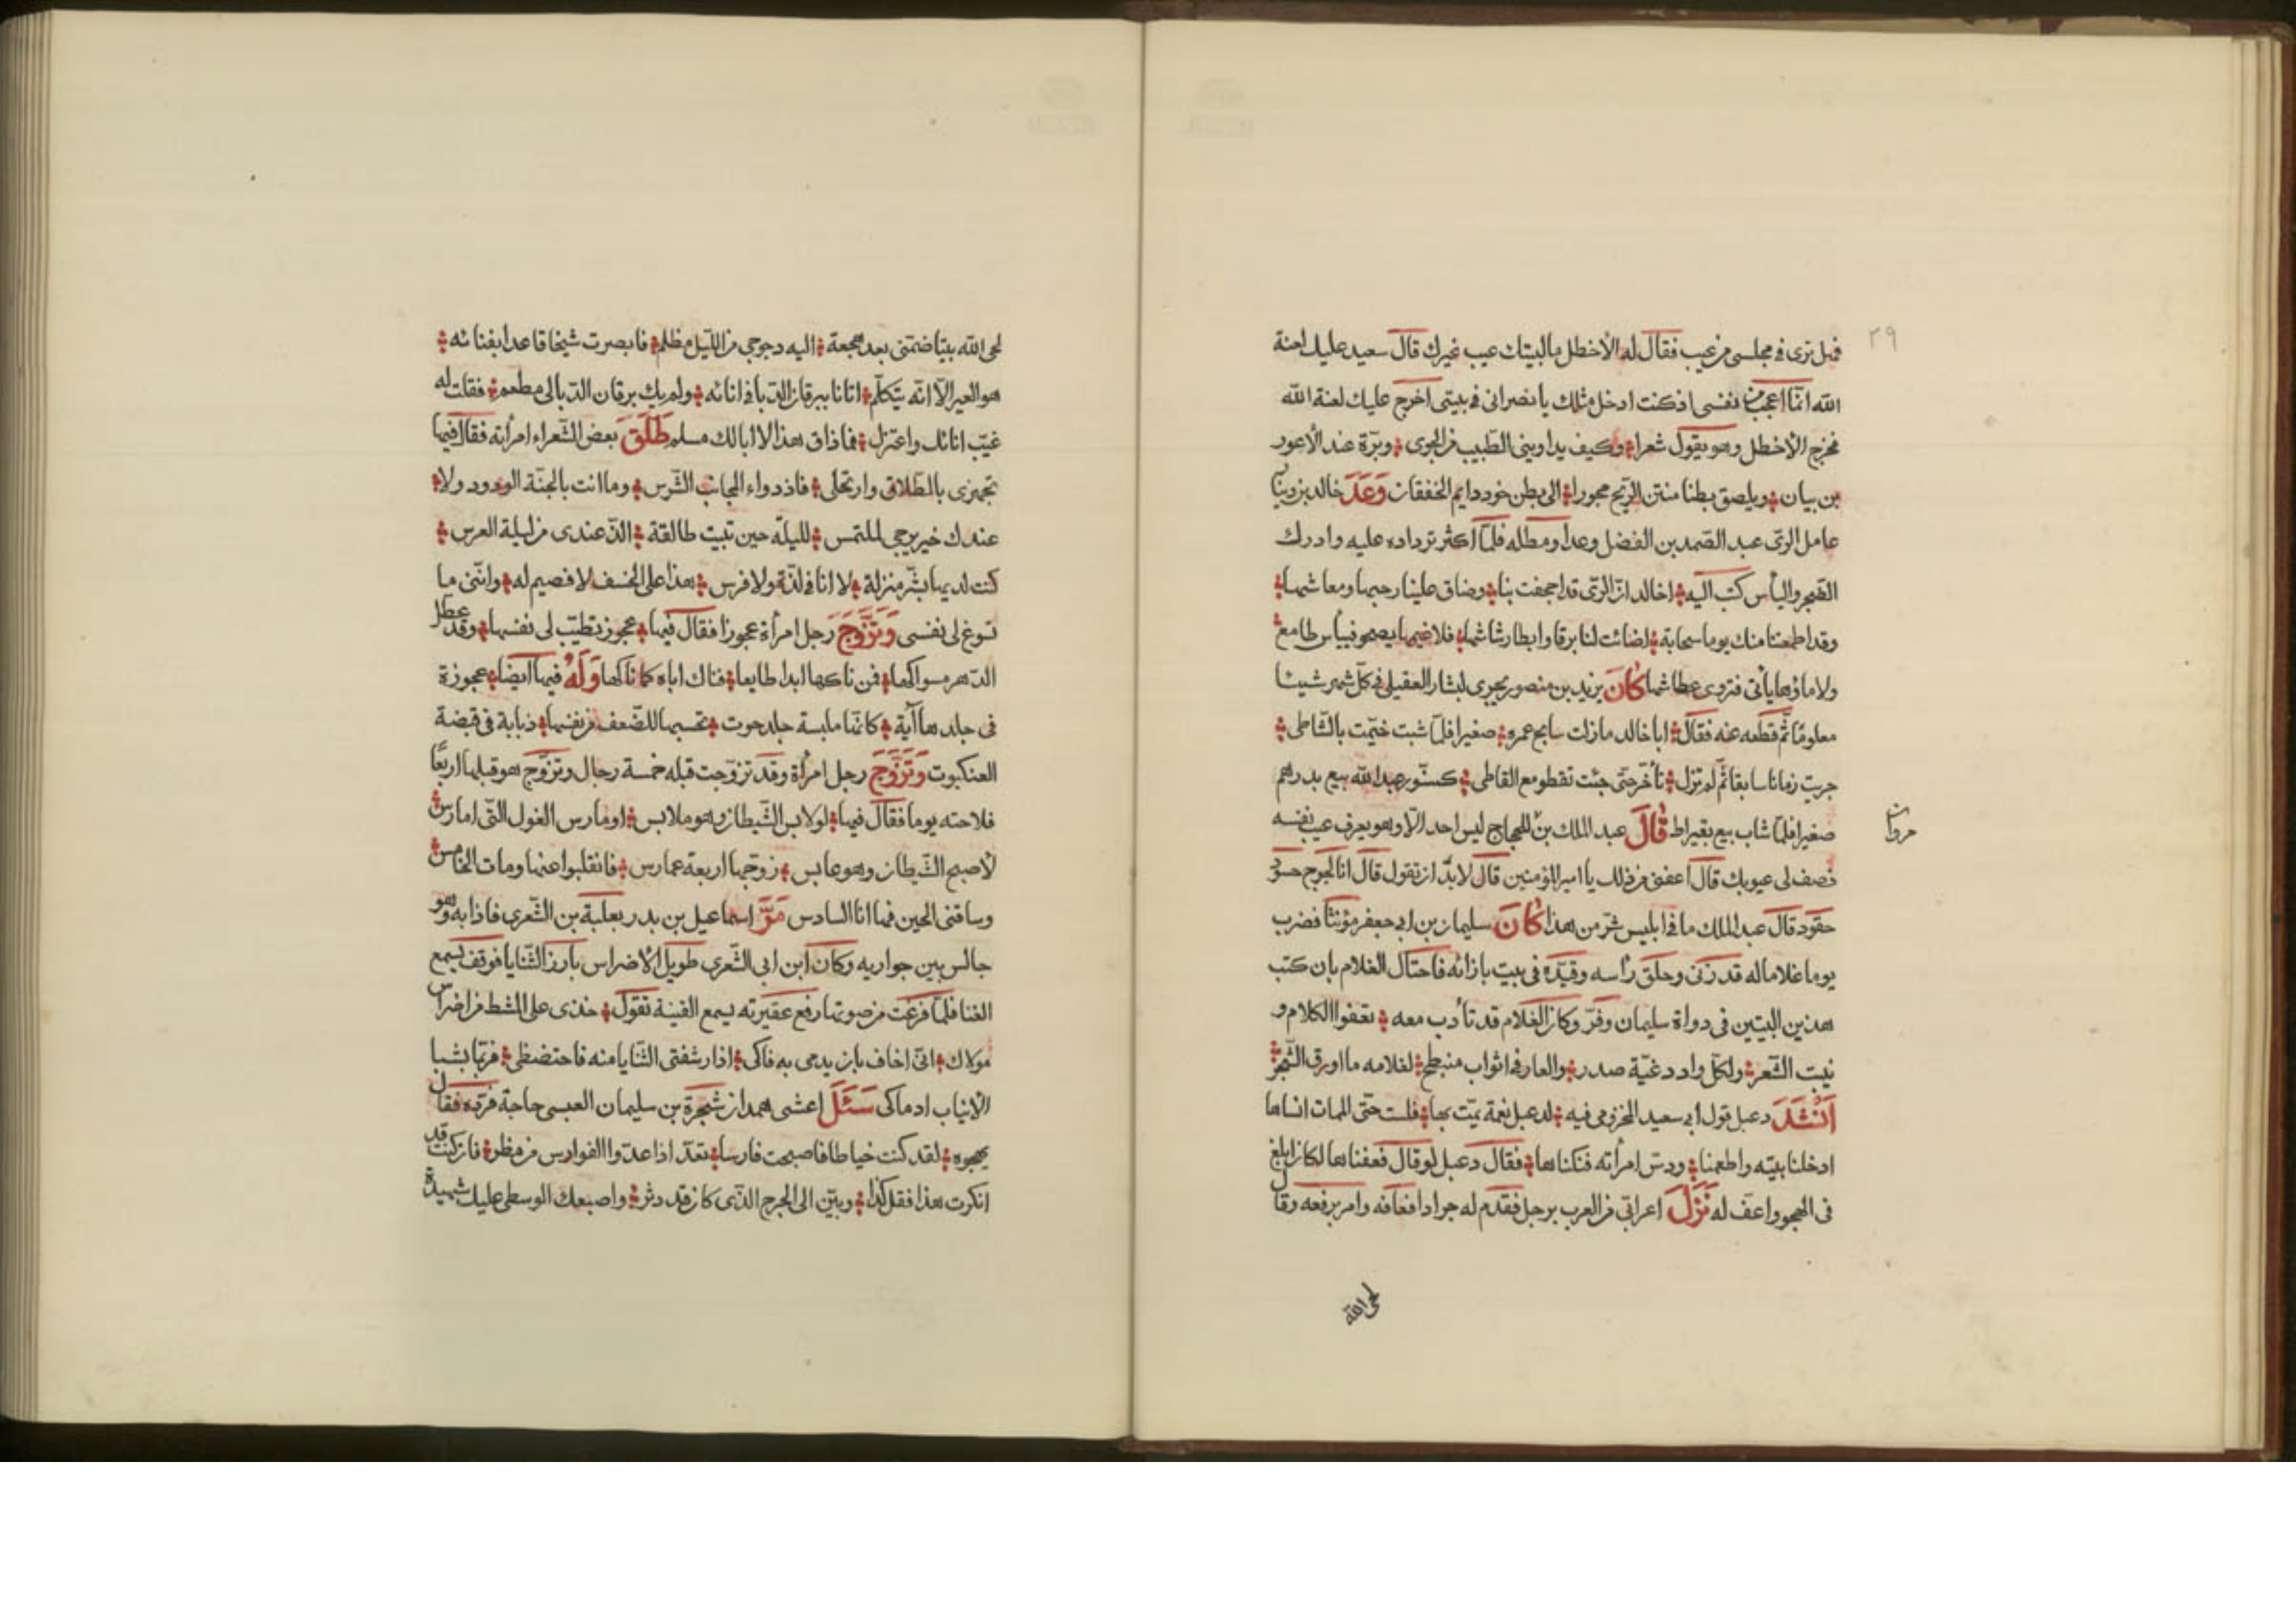 ٣٩
فهل ترى فى مجلسى من عيب فقال له الأخطل ما لبيتك عيب غيرك قال سعيد عليك لعنة
الله انّما اعجب من نفسى اذ كنت ادخل مثلك يا نصرانى فى بيتى اخرج عليك لعنة الله
فخرج الأخطل وهو يقول شعرا وكيف يداوينى الطّبيب من الجوى وبرّة عند الأعور
بن بيان ويلصق بطنا منتن الرّيح مجورا الى بطن خود دايم الخفقان وَعَدَ خالد بن
عامل الرّى عبد الصّمد بن الفضل وعدا ومطله فلمّا اكثر ترداده عليه وادرك
الضّجر واليأس كتب اليه اخالد انّ الرّى قد اجحفت بنا وضاق علينا رحبها ومعاشها
وقد اطمعتنا منك يوما سحابة اضائت لنا برقا وابطا رشاشها فلا غيمها يصحو فييأس طامع
ولا ماؤها يأتى فتروى عطاشها كَانَ يزيد بن منصور يجرى لبشار العقيلى فى كلّ شهر شيئا
معلومًا ثمّ قطعه عنه فقال ابا خالد ما زلت سابح غمره صغيرا فلمّا شبت خيّمت بالشّاطى
جريت زمانا سابقا ثمّ لم تزل تأخّر حتّى جئت تقطو مع القاطى كسنّور عبد الله بيع بدرهم
صغيرا فلمّا شاب بيع بقيراط قَالَ عبد الملك بن للحجاج ليس احد الّا وهو يعرف عيب نفسه
مروان
فصف لى عيوبك قال اعفنى من ذلك يا امير المؤمنين قال لا بدّ ان تقول قال انا لجوج حسود
حقود قال عبد الملك ما فى ابليس شرّ من هذا كَانَ سليمان بن ابى جعفر مؤنثا فضرب
يوما غلاما له قد زنى وحلق رأسه وقيّده فى بيت بازائه فاحتال الغلام بان كتب
هذين البيتين فى دواة سليمان وفرّ وكان الغلام قد تأدب معه
نبت الشّعر ولكلّ واد صدر والعار فى اثواب منبطح لغلامه ما اورق الشّجر
اَنْشَدَ دعبل قول ابى سعيد المخزومى فيه لدعبل نعمة يمّت بها فلست حتّى الممات انساها
ادخلنا بيته واطعمنا ودسّ امرأته فنكناها فقال دعبل لو قال فعفناها لكان ابلغ
فى الهجو واعفّ له نَزَلَ اعرابى من العرب برجل فقدم له جرادا فعافه وامر برفعه وقال
لحى الله
لحى الله بيتا ضمّنى بعد هجعة اليه دجوجى من اللّيل مظلم فابصرت شيخا قاعدا بفنائه
هو العير الّا انّه يتكلّم اتانا ببرقان الدّبا فى انائه ولم يك برقان الدّبا لى مطعم فقلت له
غيّب انائك واعتزل فما ذاق هذا لا ابا لك مسلم طَلَّقَ بعض الشّعراء امرأته فقال فيها
تجهزى بالطّلاق وارتحلى فاذ دواء المجانب الشّرس وما انت بالجنّة الودود ولا
عندك خير يرجى لملتمس لليلة حين تبيت طالقة الذّ عندى من ليلة العرس
كنت لديها بشّر منزلة لا انا فى لذّة ولا فرس هذا على الخسف لا قضيم له وانّنى ما
تسوغ لى نفسى وَتَزَوَّجَ رجل امرأة عجوزا فقال فيها عجوز تطيّب لى نفسها وقد عطل
الدّهر مسواكها فمن ناكها ابدا طايعا فناك اباه كما ناكها وَلَهُ فيها ايضا عجوزة
فى جلدها آية كانّما ملبسة جلد حوت تحسبها للضّعف من نفسها ذبابة فى قبضة
العنكبوت وَتَزَوَّجَ رجل امرأة وقد تزوّجت قبله خمسة رجال وتزوّج هو قبلها اربعًا
فلاحته يوما فقال فيها لو لابس الشّيطان وهو ملابس او مارس الغول التّى امارس
لأصبح الشّيطان وهو عابس زوّجها اربعة عمارس فانقلبوا عنها ومات الخامس
وساقنى الحين فها انا السادس مَرَّ اسماعيل بن بدر بعلبة بن الشّعرى فاذا به وهو
جالس بين جواريه وكان ابن ابى الشّعرى طويل الأضراس بارز الثّنايا فوقف يسمع
الغنا فلمّا فرغت من صوتها رفع عقيرته يسمع القينة تقول خذى على المشط من اضراس
مولاك انّى اخاف بان يدمى به فاكى اذا رشفتى الثّنايا منه فاحتفظى فربّما بشبا
الأنياب ادماكى سَئَلَ اعشى همدان شجرة بن سليمان العبسى حاجة فردّه فقال
يهجوه لقد كنت خياطا فاصبحت فارسا تعدّ اذا عدّوا الفوارس من مظر فان كنت قد
انكرت هذا فقل كذا وبيّن الى الجرح الذّى كان قد دثر واصبعك الوسطى عليك شهيدة